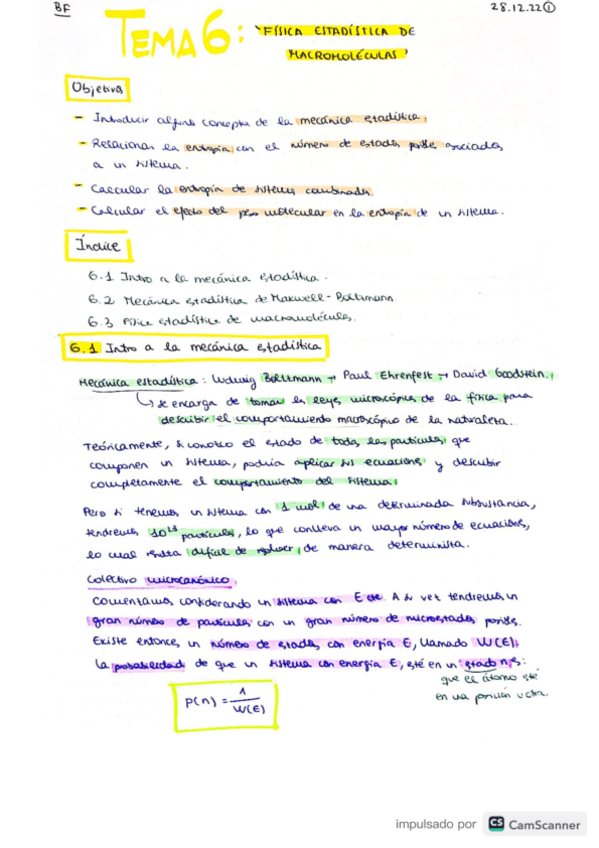 BF
28.12.22 ①
TEMA 6: "FÍSICA ESTADÍSTICA DE
MACROMOLÉCULAS"
Objetivos
- Introducir algunos conceptos de la mecánica estadística.
- Relacionar la entropía con el número de estados posibles asociados
a un sistema.
- Calcular la entropía de sistemas combinados.
- Calcular el efecto del peso molecular en la entropía de un sistema.
Índice
6.1 Intro a la mecánica estadística.
6.2 Mecánica estadística de Maxwell-Boltzmann
6.3 Física estadística de macromoléculas.
6.1 Intro a la mecánica estadística
Mecánica estadística: Ludwig Boltzmann → Paul Ehrenfest → David Goodstein.
↳ se encarga de tomar las leyes microscópicas de la física para
describir el comportamiento macroscópico de la naturaleza.
Teóricamente, si conozco el estado de todas las partículas que
componen un sistema, podría aplicar sus ecuaciones y describir
completamente el comportamiento del sistema.
Pero si tenemos un sistema con 1 mol de una determinada substancia,
tendremos 10²³ partículas, lo que conlleva un mayor número de ecuaciones,
lo cual resulta difícil de resolver de manera determinista.
Colectivo microcanónico
Comentamos considerando un sistema con E cte. A su vez tendremos un
gran número de partículas con un gran número de microestados posibles.
Existe entonces, un número de estados con energía E, llamado W(E).
La probabilidad de que un sistema con energía E, esté en un estado n, es:
que el átomo esté
en una posición
P(n) = 1/W(E)
impulsado por CS CamScanner